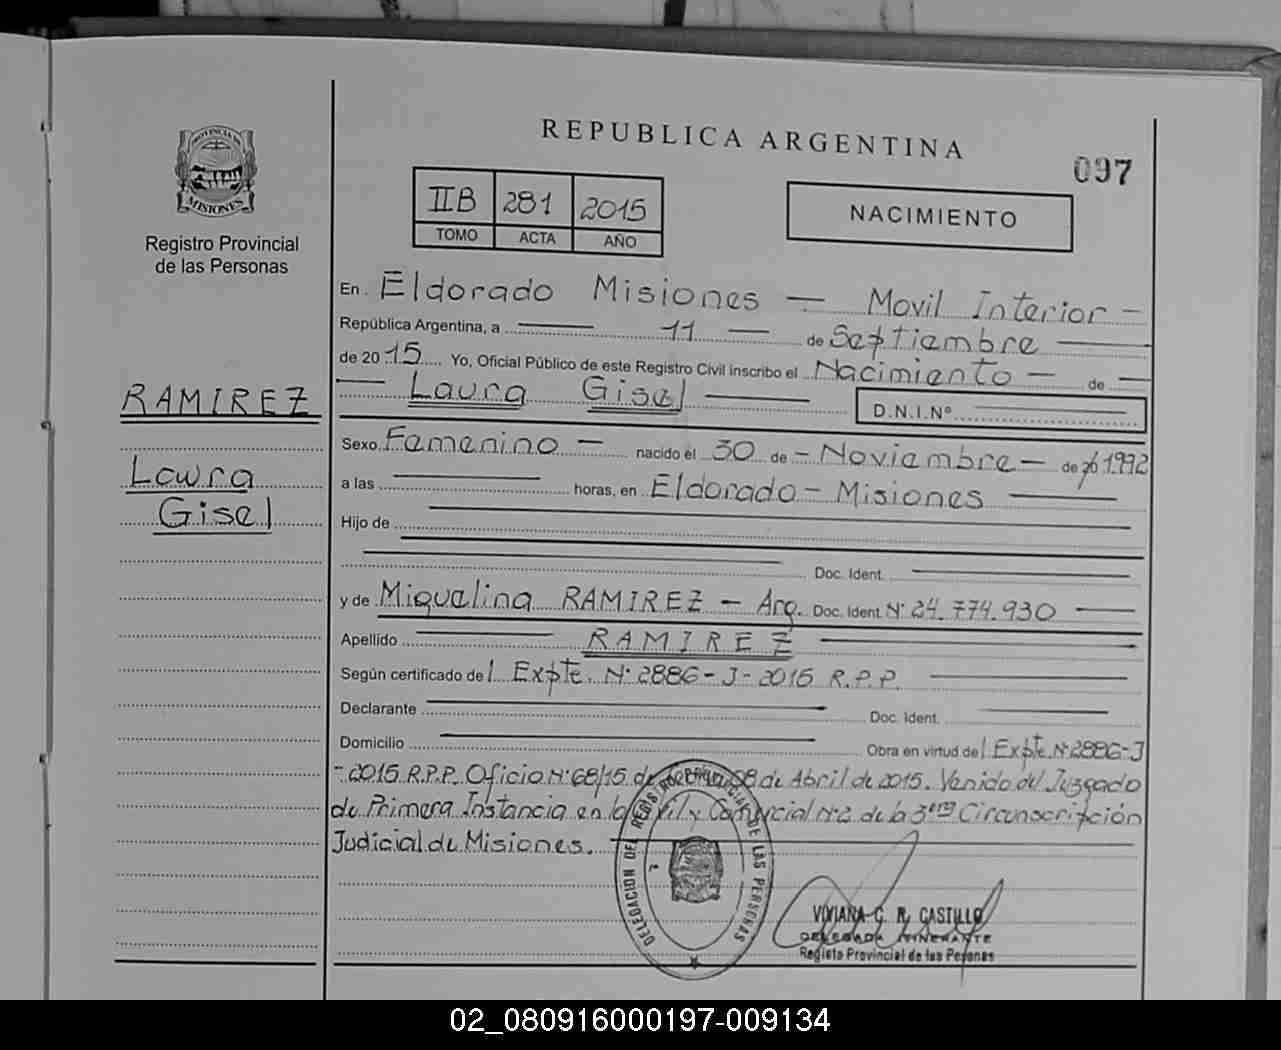 REPUBLICA ARGENTINA
097
PROVINCIA DE
MISIONES
Registro Provincial
de las Personas
IIB 281 2015
TOMO ACTA AÑO
NACIMIENTO
En Eldorado Misiones — Movil Interior —
República Argentina, a — 11 — de Septiembre —
de 2015 Yo, Oficial Público de este Registro Civil inscribo el Nacimiento — de —
— Laura Gisel —
D.N.I.Nº —
RAMIREZ
Laura
Gisel
Sexo Femenino — nacido el 30 de — Noviembre — de 1.992
a las — horas, en Eldorado — Misiones —
Hijo de —
— Doc. Ident. —
y de Miquelina RAMIREZ — Arg. Doc. Ident. Nº 24.774.930 —
Apellido — RAMIREZ —
Según certificado del Expte. Nº 2886-J-2015 R.P.P. —
Declarante — Doc. Ident. —
Domicilio — Obra en virtud del Expte. Nº 2886-J
-2015 R.P.P. Oficio Nº 68/15 de 08 de Abril de 2015. Venido del Juzgado
de Primera Instancia en lo Civil y Comercial Nº 2 de la 3era Circunscripción
Judicial de Misiones. —
DELEGACION DEL REGISTRO PROVINCIAL DE LAS PERSONAS
VIVIANA C. R. CASTILLO
DELEGADA ITINERANTE
Registo Provincial de las Pesonas
02_080916000197-009134